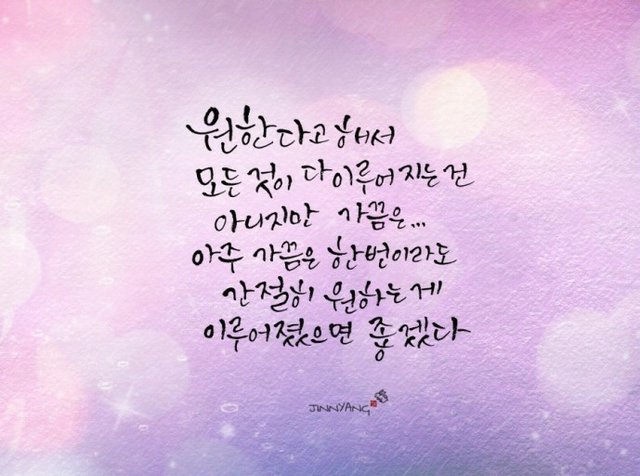 원한다고 해서
모든 것이 다 이루어 지는 건
아니지만 가끔은...
아주 가끔은 한번이라도
간절히 원하는 게
이루어졌으면 좋겠다
JINNYANG